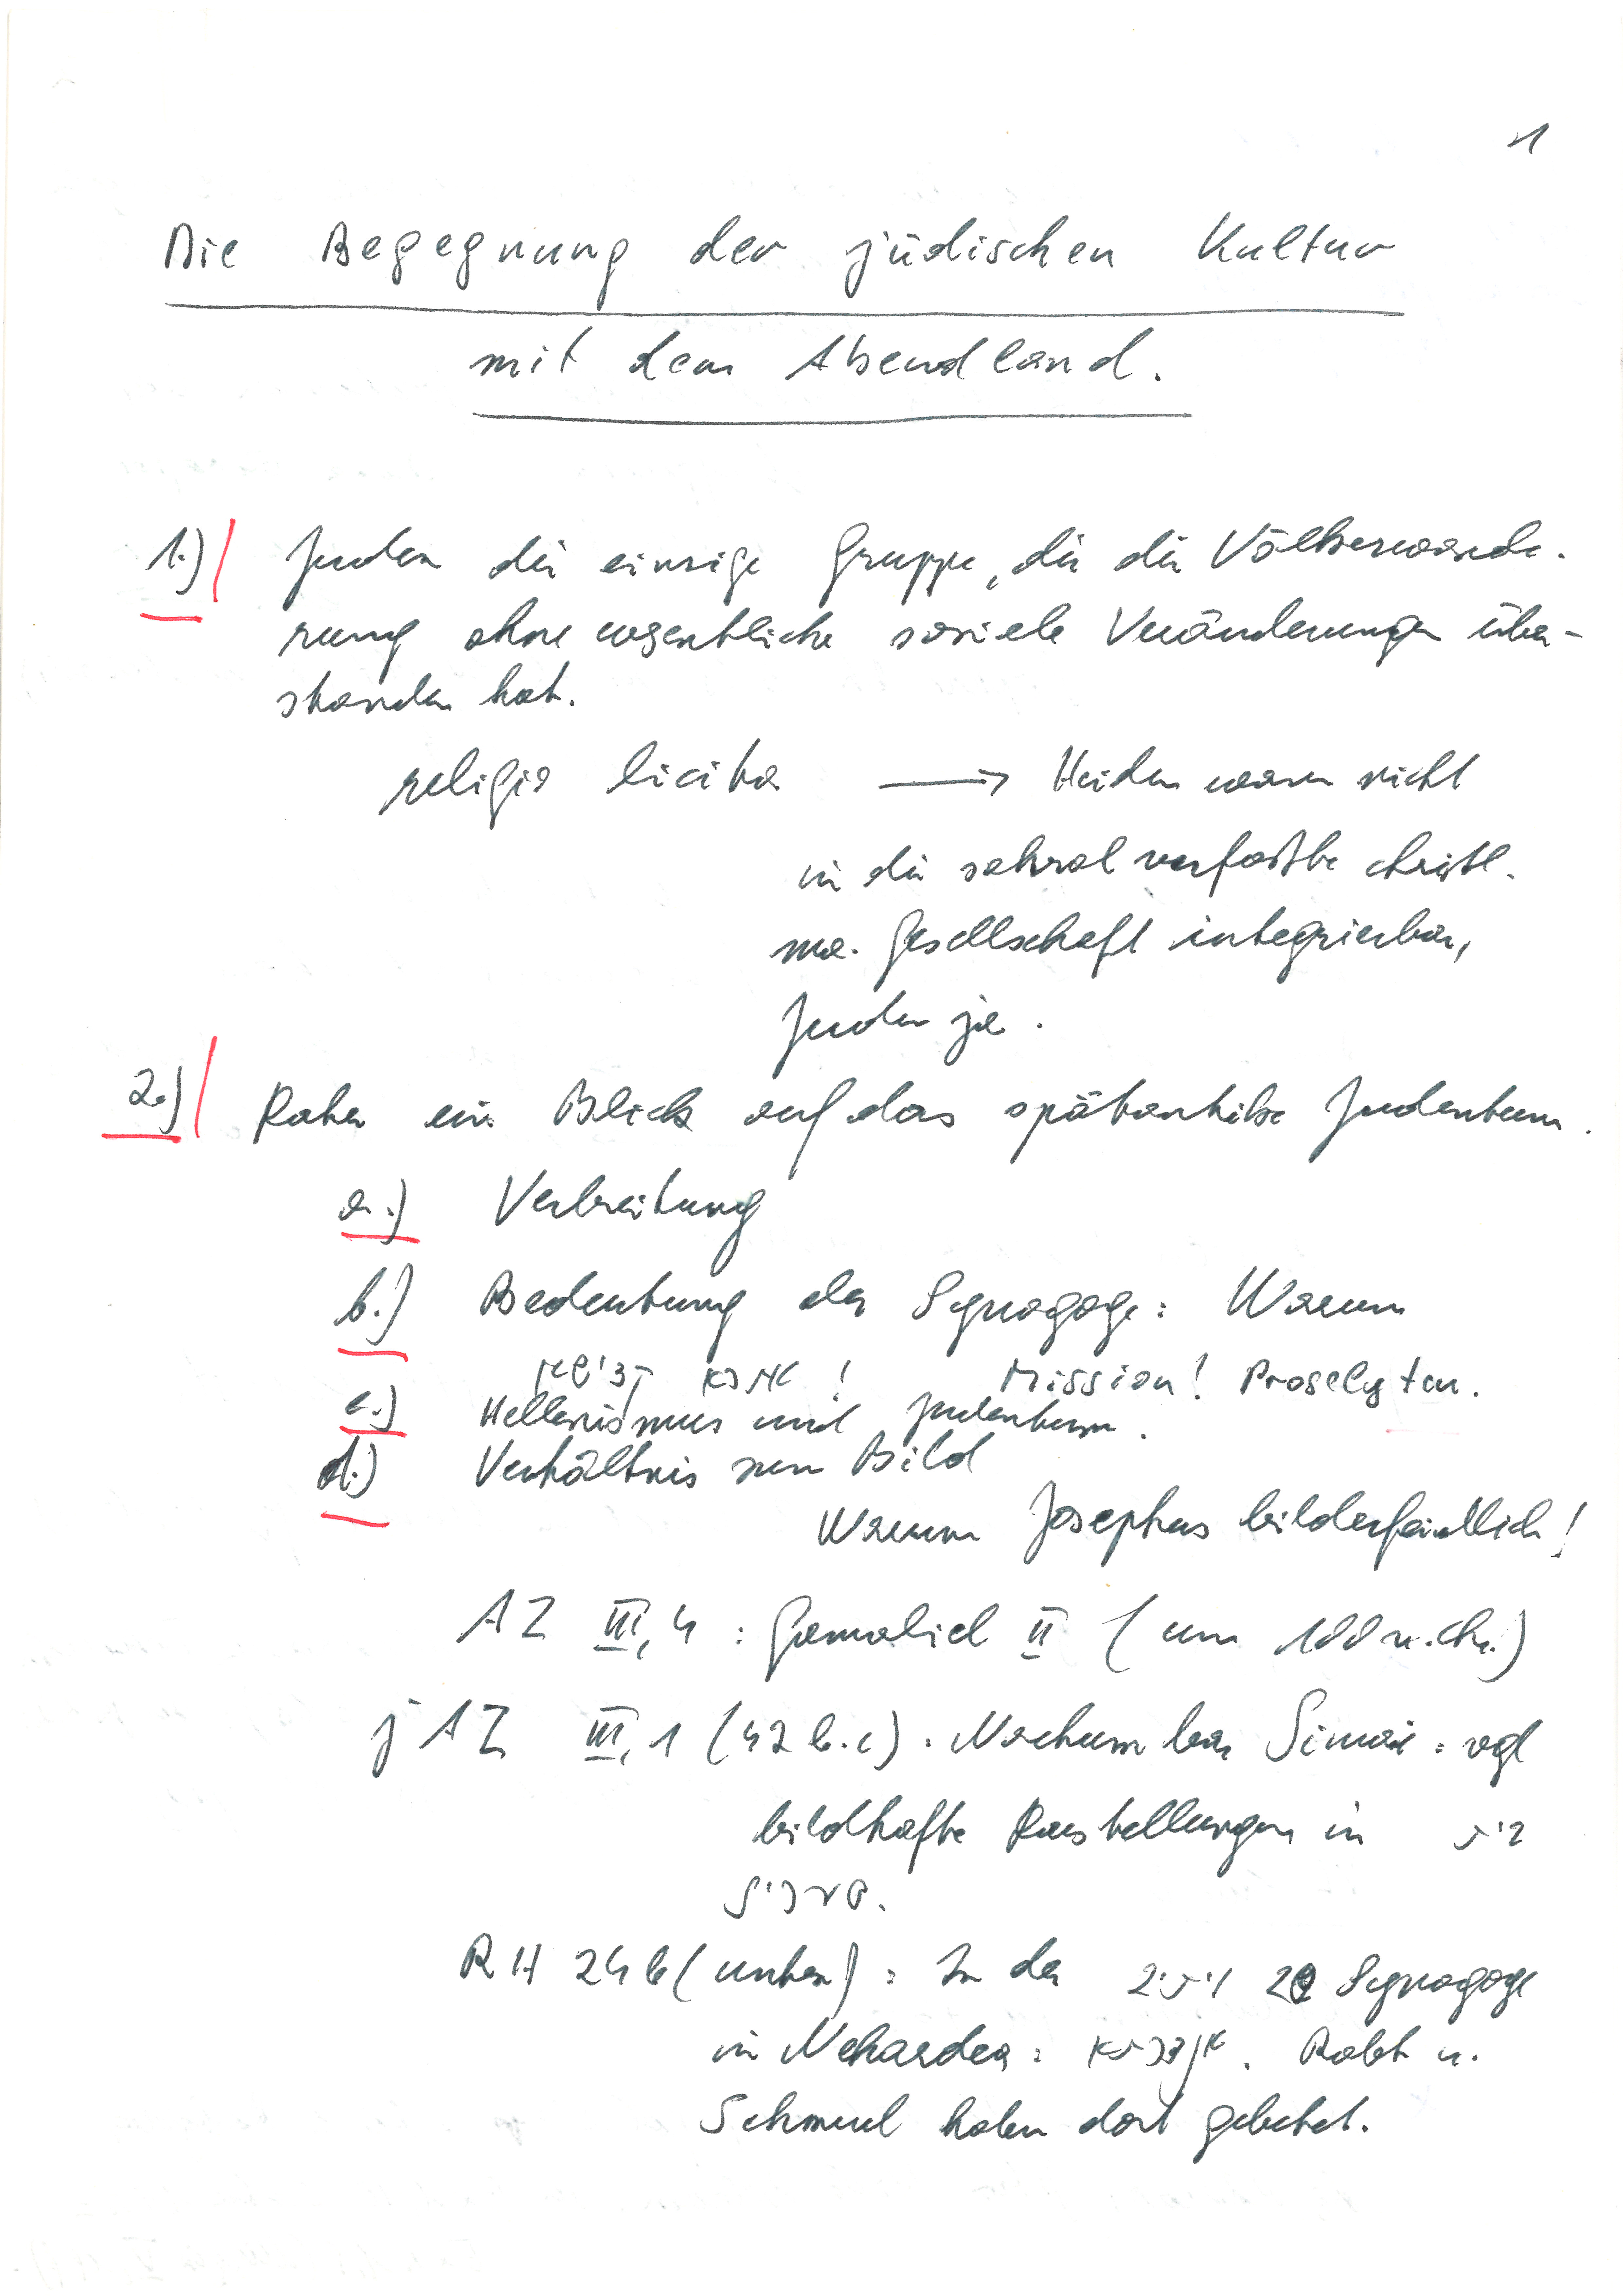 1
Die Begegnung der jüdischen Kultur
mit dem Abendland.
1.) Juden die einzige Gruppe, die die Völkerwande-
rung ohne wesentliche soziale Veränderungen über-
standen hat.
religio licita → Heiden waren nicht
in die sakral verfaßte christl.
ma. Gesellschaft integrierbar,
Juden ja.
2.) Daher ein Blick auf das spätantike Judentum.
a.) Verbreitung
b.) Bedeutung der Synagoge: Warum
! Mission! Proselyten.
c.) Hellenismus und Judentum.
d.) Verhältnis zum Bild
Warum Josephus bilderfeindlich!
AZ III,4 : Gamaliel II (um 100 n. Chr.)
jAZ III,1 (42 b.c). Nachum bar Simai: vgl
bildhafte Darstellungen in בית
שערים.
RH 24b (unten): In der שף ויתיב Synagoge
in Nehardea: אנדרטא. Rabh u.
Schmuel haben dort gebetet.